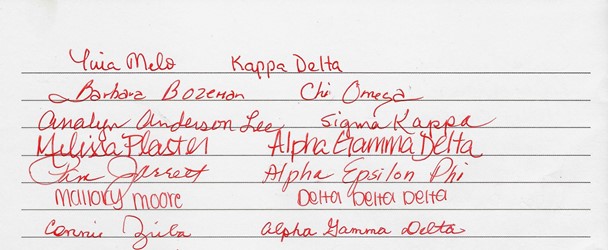 Melo Kappa Delta
Barbara Bozeman Chi Omega
Analyn Anderson Lee Sigma Kappa
Melissa Plaster Alpha Gamma Delta
Jarrett Alpha Epsilon Phi
Mallory Moore Delta Delta Delta
Connie Alpha Gamma Delta